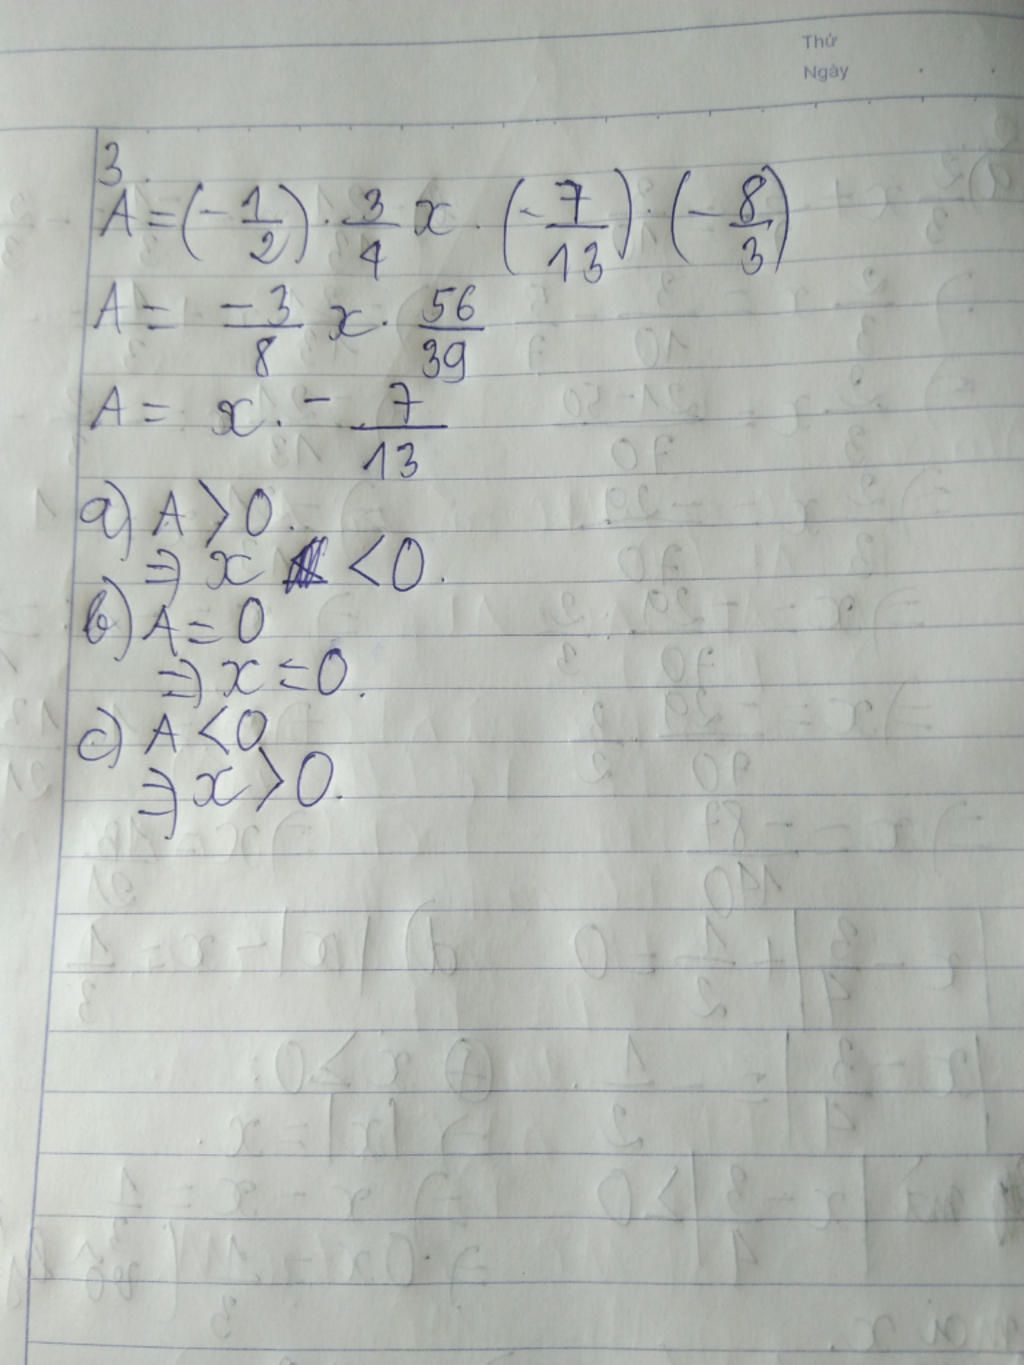 Thứ
Ngày
3.
A = (-1/2) . 3/4 x . (-7/13) . (-8/3)
A = -3/8 x . 56/39
A = x . - 7/13
a) A > 0.
=> x < 0.
b) A = 0
=> x = 0.
c) A < 0
=> x > 0.